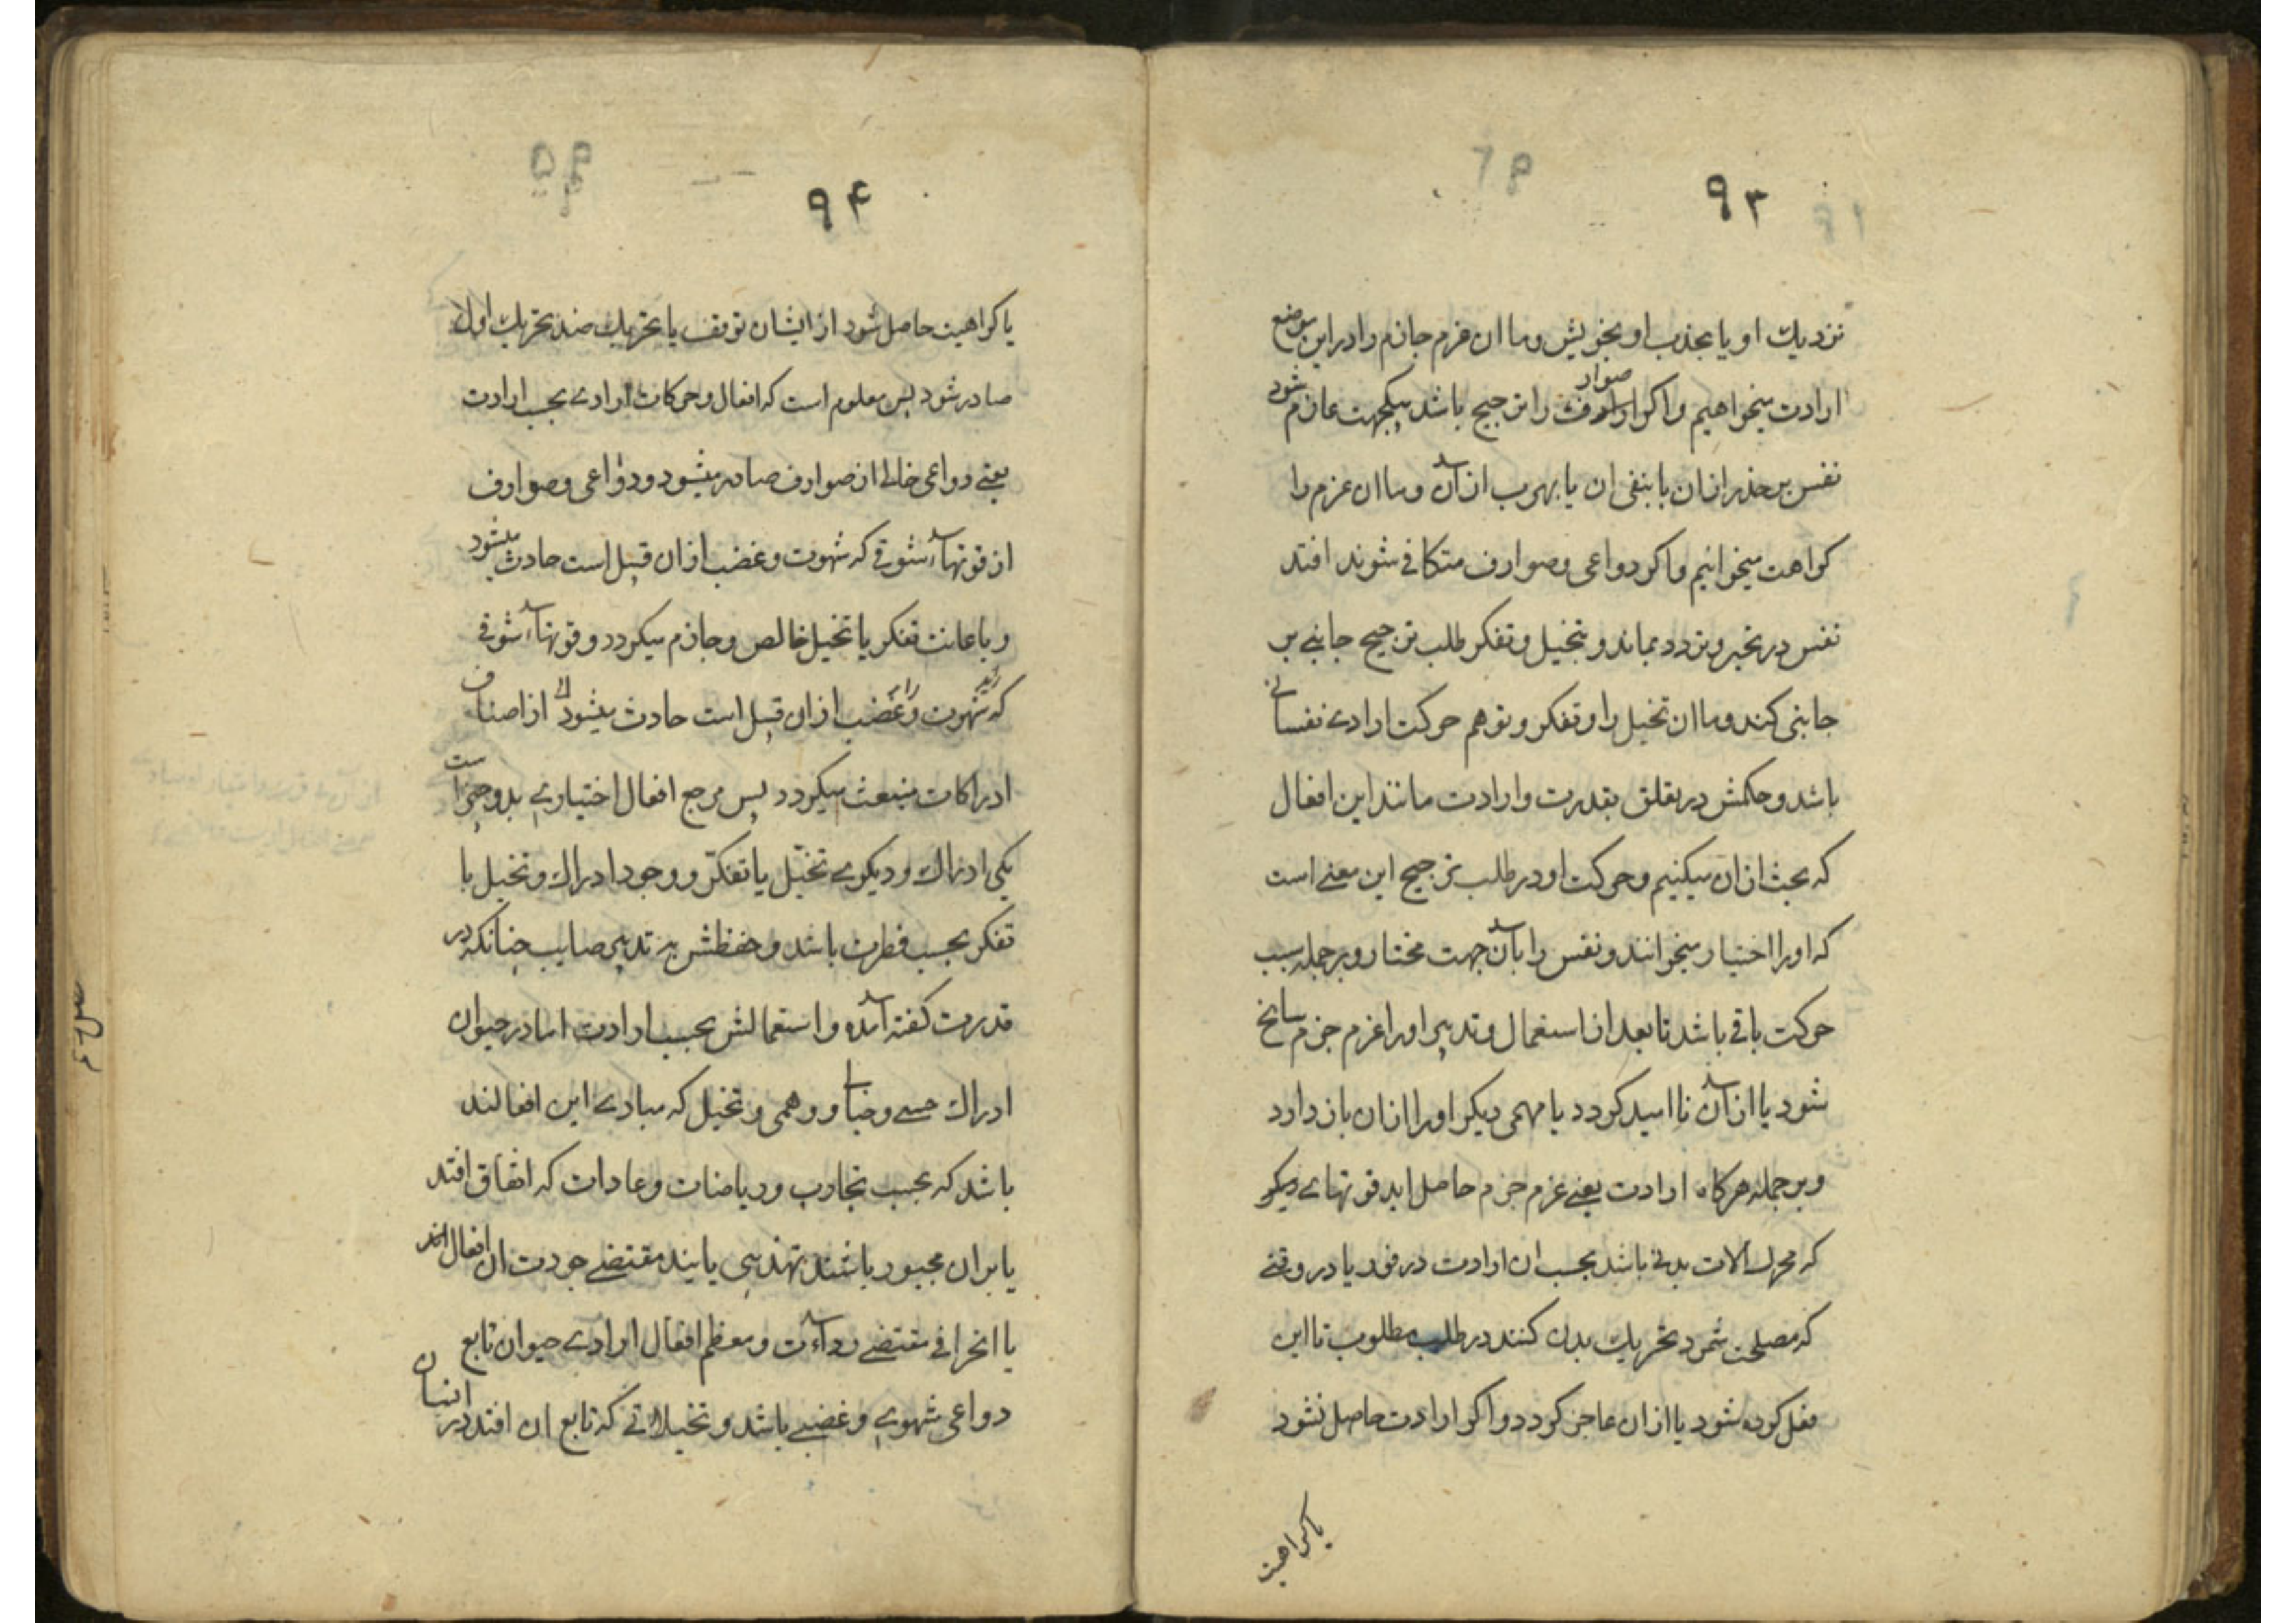 ۹۳
نزدیك او یا بجذب او بخویش وما ان عزم جازم را دراین موضع
ارادت میخواهیم واكر صوارف را ترجیح باشد بیكجهت عازم شود
نفس بر حذر ازان یا بنفی ان یا بهرب ازآن وما ان عزم را
كراهت میخوانیم واكر دواعی وصوارف متكافی شوند افتد
نفس در تحیر وتردد بماند و بتخیل وتفكر طلب ترجیح جانبی بر
جانبی كند وما ان تخیل را وتفكر وتوهم حركت ارادی نفسانی
باشد وحكمش در تعلق بقدرت وارادت مانند این افعال
كه بحث ازان میكنیم وحركت او در طلب ترجیح این معنی است
كه اورا اختیار میخوانند ونفس را بآن جهت مختار وبرجمله سبب
حركت باقی باشد تا بعد از استعمال وتدبیر اورا عزم جزم سانح
شود یا از آن ناامید كردد یا مهمی دیكر اورا ازان باز دارد
وبرجمله هركاه ارادت یعنی عزم جزم حاصل اید قوتهای دیكر
كه محرك الات بدنی باشد بحسب ان ارادت در فور یا در وقتی
كه مصلحت شمرد تحریك بدن كنند در طلب مطلوب تا این
فعل كرده شود یا ازان عاجز كردد واكر ارادت حاصل نشود
یا كراهیت
۹۴
یا كراهیت حاصل شود از ایشان توقف یا تحریك ضد تحریك اول
صادر شود پس معلوم است كه افعال وحركات ارادی بحسب ارادت
یعنی دواعی خالی از صوارف صادر میشود ودواعی وصوارف
از قوتهاء شوقی كه شهوت وغضب ازان قبیل است حادث میشود
و باعانت تفكر یا تخیل خالص وجازم میكردد وقوتهاء شوقی
كه شهوت وغضب ازان قبیل است حادث میشود از اصناف
ادراكات منبعث میكردد پس مرجع افعال اختیاری بدو چیز است
یكی ادراك ودیكری تخیّل یا تفكّر ووجود ادراك وتخیل با
تفكر بحسب فطرت باشد وحفظش بر تدبیر صایب چنانكه در
قدرت كفته آمده واستعمالش بحسب ارادت اما در حیوان
ادراك حسی وخیالی ووهمی وتخیل كه مبادی این افعالند
باشد كه بحسب تجارب وریاضات وعادات كه اتفاق افتد
یا بران مجبور باشند تهذیبی یابند مقتضی جودت ان افعال افتد
یا انحرافی مقتضی رداءت ومعظم افعال ارادی حیوان تابع
دواعی شهوی وغضبی باشد وتخیلاتی كه تابع ان افتد در انسان